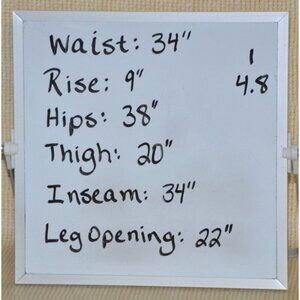 Waist: 34"
Rise: 9"
Hips: 38"
Thigh: 20"
Inseam: 34"
Leg Opening: 22"
1
4.8